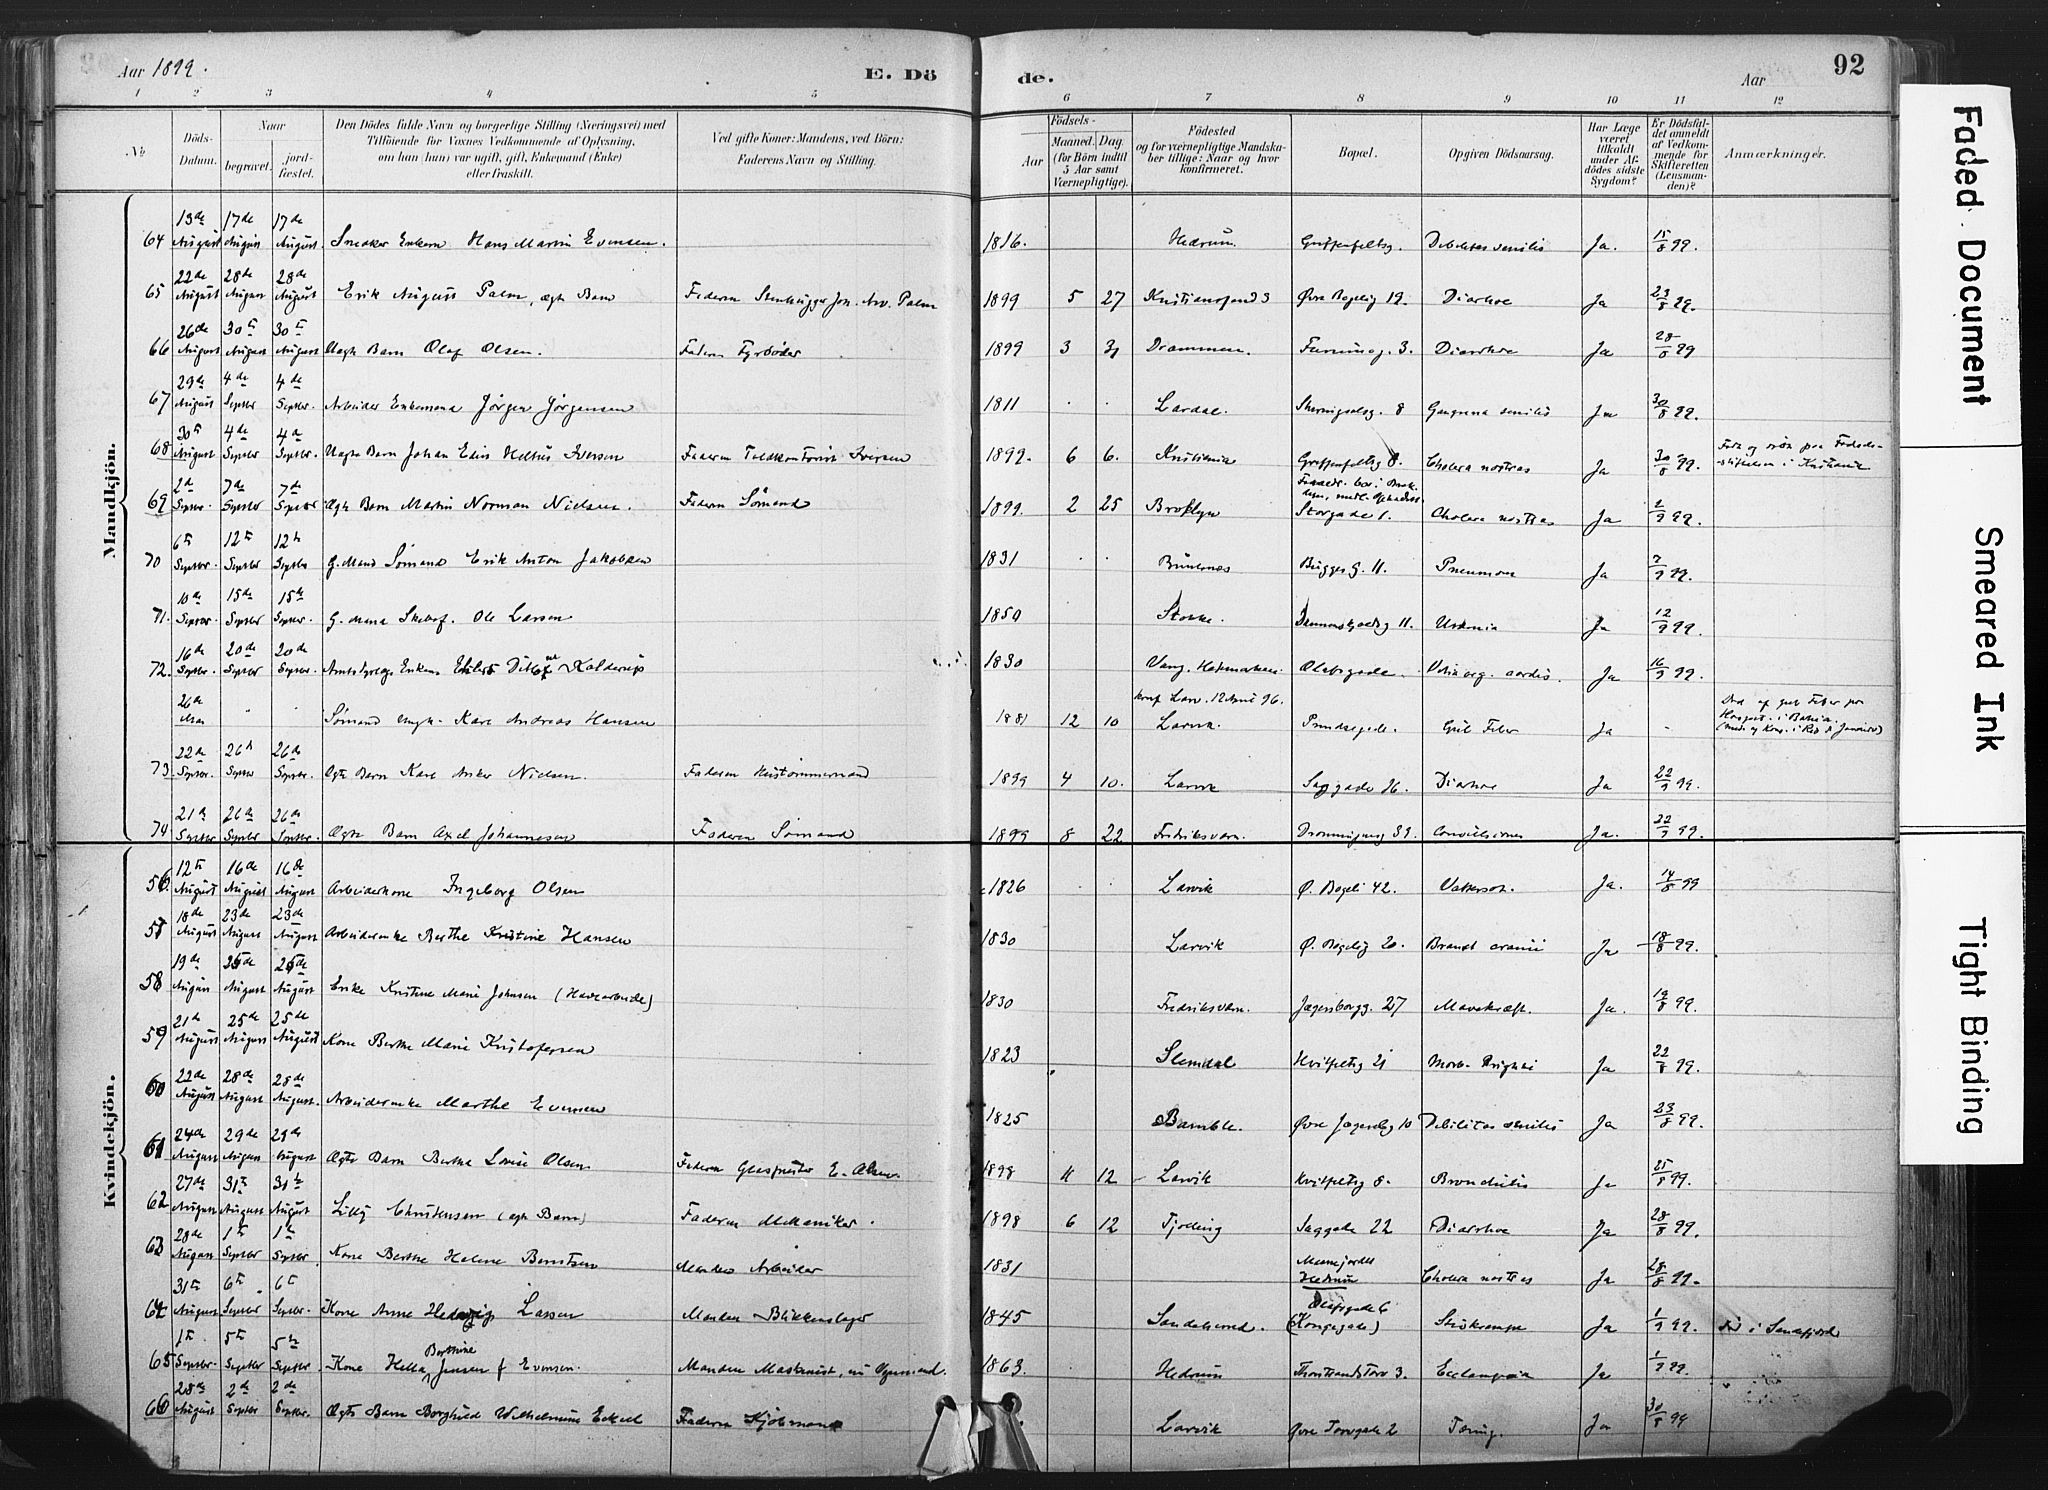 Aar 1899.
E. Dö
de.
Aar
92
1 2 3 4 5 6 7 8 9 10 11 12
No
Döds-
Datum.
Naar
begravet.
jord-
fæstet.
Den Dödes fulde Navn og borgerlige Stilling (Næringsvei) med
Tilföiende for Voxnes Vedkommende af Oplysning,
om han (hun) var ugift, gift, Enkemand (Enke)
eller fraskilt.
Ved gifte Koner: Mandens, ved Börn:
Faderens Navn og Stilling.
Födsels-
Aar
Maaned.
Dag.
(for Börn indtil
5 Aar samt
Værnepligtige).
Födested
og for værnepligtige Mandska-
ber tillige: Naar og hvor
konfirmeret.
Bopæl.
Opgiven Dödsaarsag.
Har Læge
været
tilkaldt
under Af-
dödes sidste
Sygdom?
Er Dödsfal-
det anmeldt
af Vedkom-
mende for
Skifteretten
(Lensman-
den)?
Anmærkninger.
Mandkjön.
64 13de August 17de August 17de August Hans Martin Evensen. 1816. Hedrum. Ja. 15/8 99.
65 22de August 28de August 28de August Erik August Palm, ægte Barn Faderen Palm 1899 5 27 Øvre Bøgelig 19. Diarhoe Ja 23/8 99.
66 26de August 30te August 30te August Uægte Barn Olaf Olsen. Faderen Fyrbøder 1899 3 31 Drammen. 3. Diarrhoe Ja 28/8 99
67 29de August 4de Septbr 4de Septbr. Arbeider Enkemand Jørgen Jørgensen 1811 Lardal. 8 Gangrena senilis Ja 30/8 99.
68 30te August 4de Septbr 4de Septbr. Uægte Barn Johan Iversen Faderen Iversen 1899. 6 6. Kristiania Griffenfeltsg 8. Cholera nostras Ja 30/8 99.
69 2de Septbr. 7de Septbr 7de Septbr Ægte Barn Martin Norman Nielsen. Faderen Sømand 1899. 2 25 Broklyn Storgade 1. Cholera nostras Ja 2/9 99.
70 6te Septbr. 12te Septbr 12te Septbr G. Mand Sømand Erik Anton Jakobsen 1831 Brunlanes Bugges G. 11. Pneumoni Ja 7/9 99.
71. 10de Septbr. 15de Septbr 15de Septbr. Ole Larsen 1850 Stokke. 11. Ja 12/9 99.
72. 16de Septbr 20de Septbr 20de Septbr. Kolderup 1830 Vang. Hedemarken Olafsgade. cordis. Ja 16/9 99.
26de Mai Sømand ungk. Karl Andreas Hansen 1881 12 10 konf Larv. 12 April 96. Larvik. Gul Feber Ja - Død af gul Feber paa
Hospit. i Bahia.
73. 22de Septbr. 26de Septbr 26de Septbr. Ægte Barn Karl Anker Nielsen. Faderen Hustømmermand 1899 4 10. Larvik Saggade 26. Diarhoe Ja 22/9 99.
74 21de Septbr 26de Septbr 26de Septbr. Ægte Barn Axel Johannesen Faderen Sømand 1899 8 22 Fredriksværn. Dronningensg 39. Convulsiones Ja. 22/9 99.
Kvindekjön.
56. 12te August 16de August 16de August Arbeiderkone Ingeborg Olsen 1826 Larvik Ø. Bøgeli 42. Vattersot. Ja. 14/8 99
57 18de August 23de August 23de August Arbeiderenke Berthe Kristine Hansen 1830 Larvik Ø. Bøgelig 20. Ja 18/8 99.
58 19de August 25de August 25de August Enke Kristine Marie Johnsen (Havearbeide) 1830 Fredriksværn. Jægersborgg. 27 Mavekræft. Ja. 19/8 99.
59 21de August 25de August 25de August Kone Berthe Marie Kristofersen 1823 Slemdal Hvitfeltsg 21 Morb. Brightii Ja 22/8 99.
60 22de August 28de August 28de August. Arbeiderenke Marthe Evensen 1825 Bamble. Øvre Jægersbg 10 Debilitas senilis Ja 23/8 99.
61 24de August 29de August 29de August Ægte Barn Bertha Lovise Olsen Faderen Glaspuster E. Olsen. 1898 11 12 Larvik Hvitfeltsg 8. Bronchitis Ja 25/8 99.
62 27de August 31te August 31te August Lilly Christensen (ægte Barn) Faderen Mekaniker. 1898 6 12 Tjølling Saggade 22 Diarrhoe Ja 28/8 99.
63 28de August 1te Septbr 1te Septbr. Kone Berthe Helene Berntsen Manden Arbeider 1831 Hedrum Cholera nostras Ja 28/8 99.
64 31te August 6te Septbr 6te Septbr. Kone Anne Hedevig Lassen Manden Blikkenslager 1845 Sandeherred. Olafsgade 6 (Kongegade) Ja 1/9 99. Død i Sandefjord
65 1te Septbr. 5te Septbr 5te Septbr. Kone Hella Berthine Jensen f Evensen. Manden Maskinist, nu Vognmand. 1863. Hedrum Thorstrands Torv 3. Eclampsia Ja 1/9 99.
66 28de August 2de Septbr 2de Septbr. Ægte Barn Borghild Wilhelmine Eckell Faderen Kjøbmand Larvik Øvre Torvgade 2 Tæring. Ja 30/8 99
Faded Document
Smeared Ink
Tight Binding